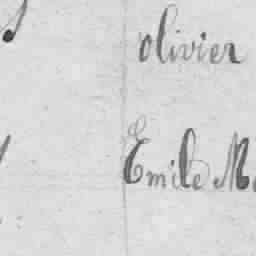 olivier
Emile